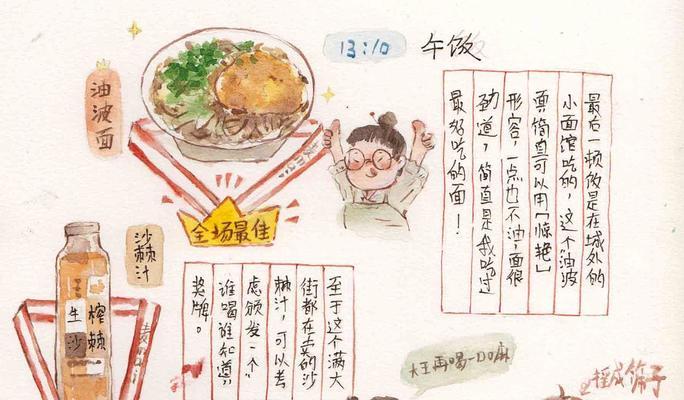 13:10 午饭
油波面
最后一顿饭是在城外的
小面馆吃的，这个油波
面简直可以用「惊艳」
形容，一点也不油，面很
劲道，简直是我吃过
最好吃的面！
全场最佳
沙棘汁
生榨
沙棘
至于这个满大
街都在卖的沙
棘汁，可以考
虑颁发一个“
谁喝谁知道”
奖牌。
大王再喝一口麻